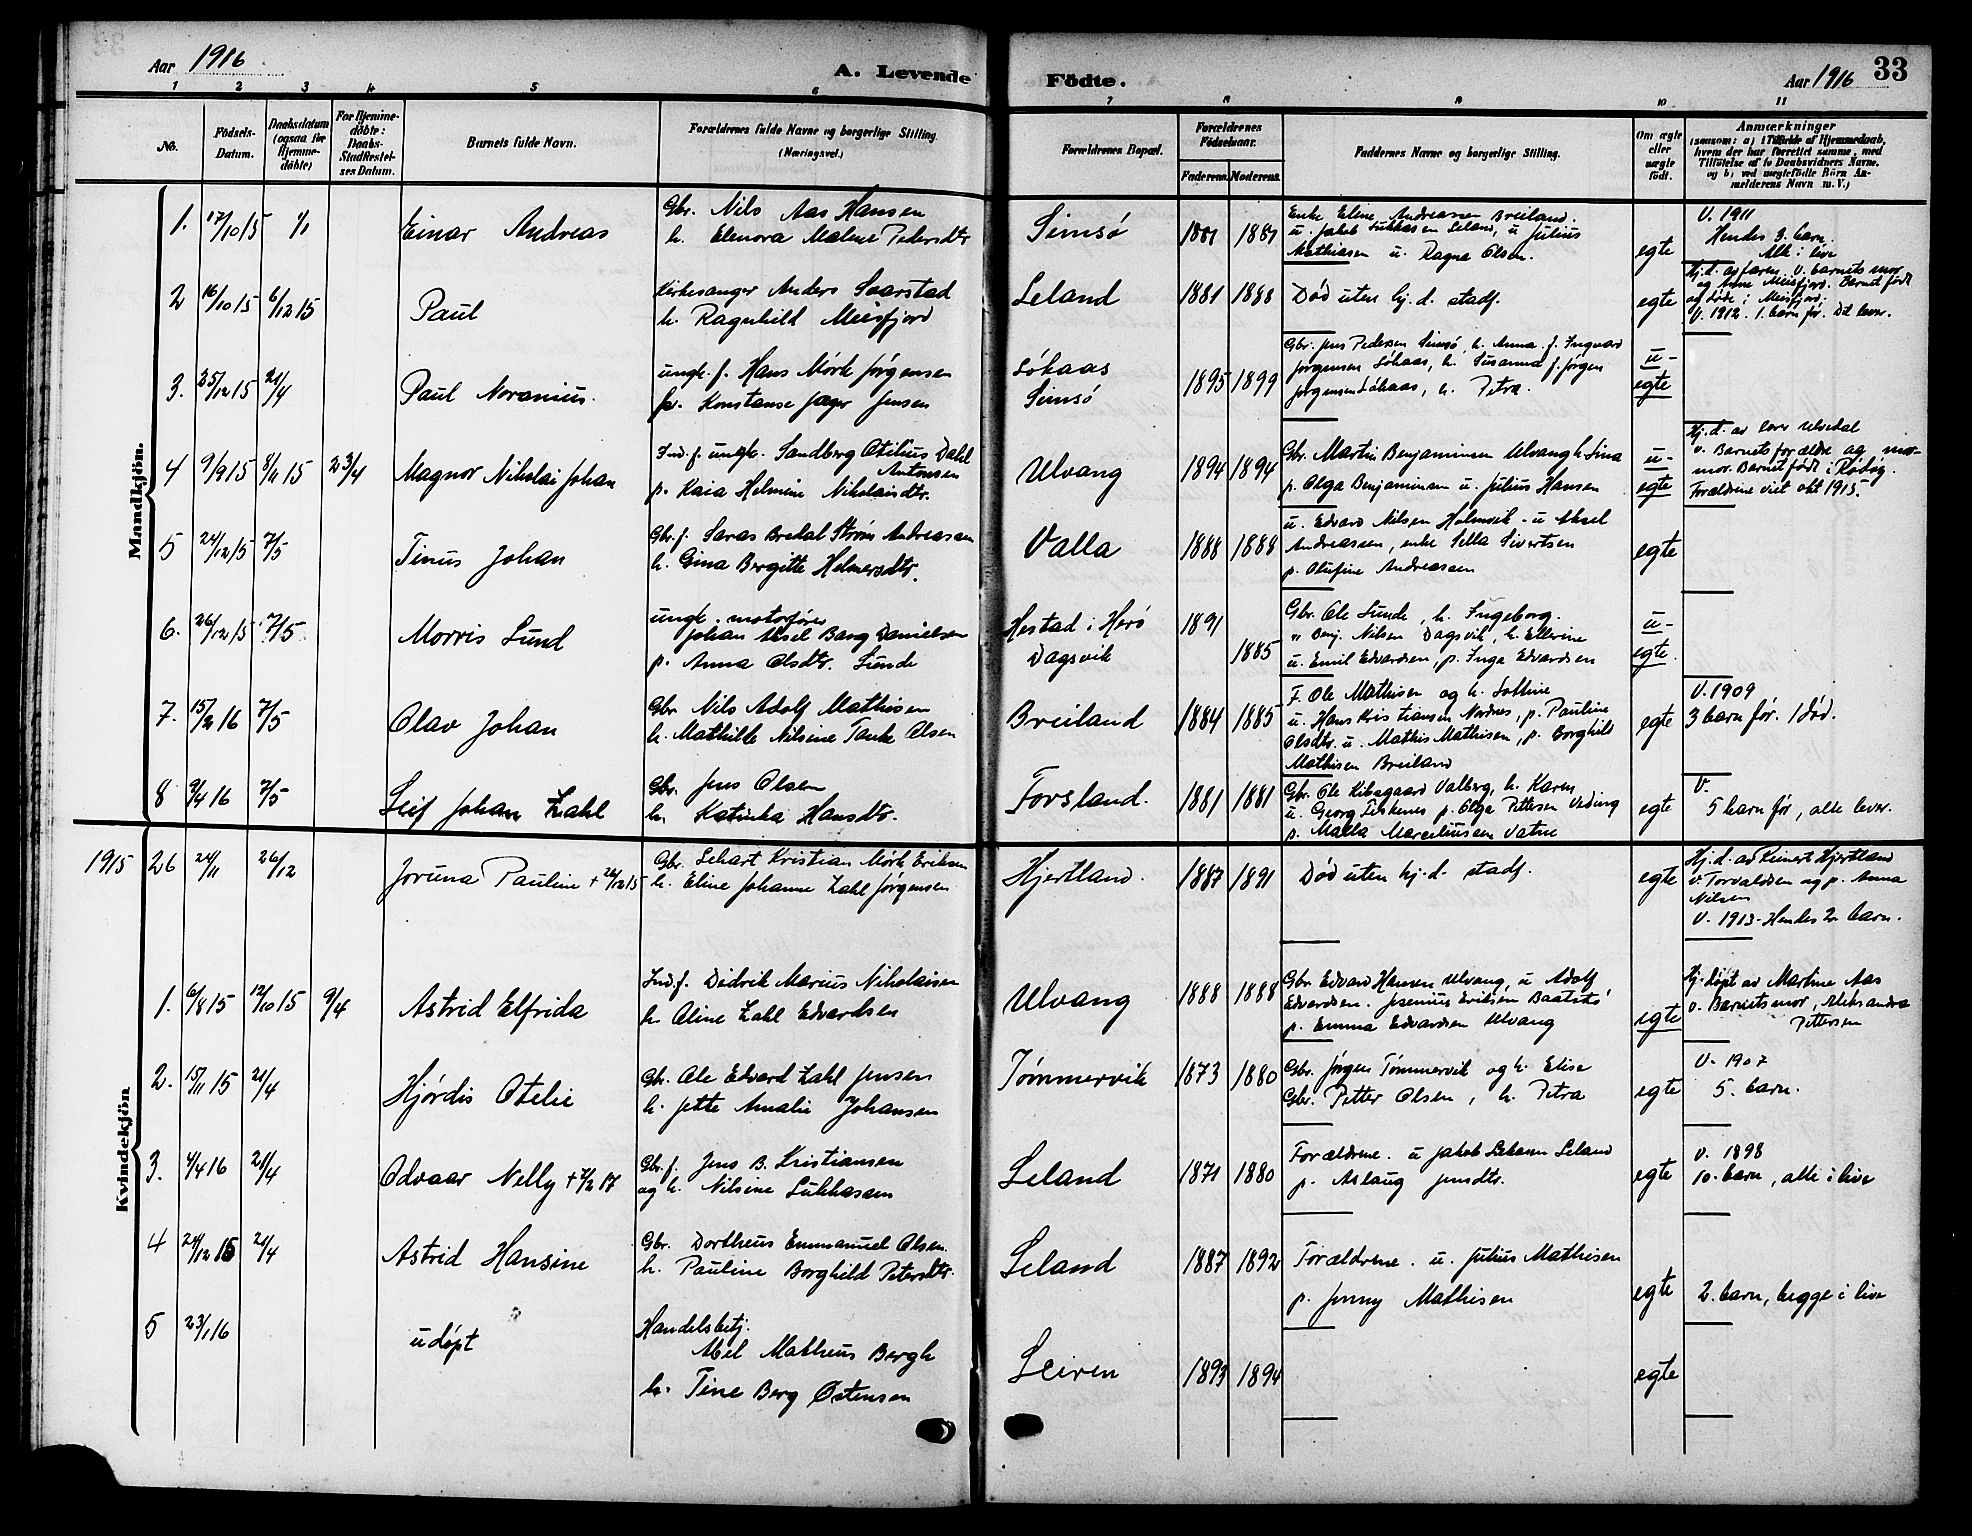 Aar 1916
A. Levende
Födte.
Aar 1916
33
1 2 3 4 5 6 7 8 9 10 11
No.
Födsels-
Datum.
Daabsdatum
(ogsaa for
Hjemme-
döbte)
For Hjemme-
döbte:
Daabs-
Stadfestel-
ses Datum.
Barnets fulde Navn.
Forældrenes fulde Navne og borgerlige Stilling.
(Næringsvei.)
Forældrenes Bopæl.
Forældrenes
Födselsaar.
Faderens. Moderens.
Faddernes Navne og borgerlige Stilling.
Om ægte
eller
uægte
födt.
Anmærkninger
(saasom: a) i Tilfælde af Hjemmedaab,
hvem der har forrettet samme, med
Tilföielse af to Daabsvidners Navne,
og b) ved uægtefödte Börn An-
melderens Navn m. V.)
Mandkjön.
1. 17/10 15 1/1
Einar Andreas
Gbr. Nils Aas Hansen
h. Elenora Malene Pedersdtr
Simsø
1881 1881
Enke Eline Andreassen Breiland.
u. Jakob Lukkasen Leland, u Julius
Mathiasen u. Ragna Olsen.
egte
V. 1911
Hendes 3. barn.
Alle i live
2 16/10 15 6/12 15
Paul
Kirkesanger Anders Svarstad
h. Ragnhild Meisfjord
Leland
1881 1888
Død uten hj. d. stadf.
egte
Hj. d. av faren v. barnets mor
og Meisfjord. Barnet født
og døbt i Meisfjord.
V. 1912. 1. barn før. Det lever.
3. 25/12 15 21/4
Paul Noranius.
ungk. f. Hans Mørk Jørgensen
p. Konstanse Jager Jensen
Løkaas
Simsø
1895 1899
Gbr. Jens Pedersen Simsø, h. Anna. f. Ingvard
Jørgensen Løkaas, h. Susanna f. Jørgen
Jørgensen Løkaas, h. Petra.
u-
egte
4 9/9 15 8/11 15 23/4
Magnor Nikolai Johan
Ind. f. ungk. Sandberg Otelius Dahl
Antonsen
p. Kaia Helmine Nikolaisdtr.
Ulvang
1894 1894
Gbr. Martin Benjaminsen Ulvang h. Lina
p. Olga Benjaminsen u. Julius Hansen
u-
egte
Hj. d. av
v. Barnets forældre og mor-
mor. Barnet født i
Forældrene viet okt 1915.
5 24/12 15 7/5
Tinus Johan
Gbr. f. Saras Bredal Strøm Andreassen
h. Gina Bergitte Helmersdtr.
Valla
1888 1888
u. Edvard Nilsen Holmvik - u Aksel
Andreassen, enke Sella Sivertsen
p. Olufine Andreassen
egte
6. 26/12 15 7/5
Morris Lund
ungk. motorfører
Johan Aksel Bang Danielsen
p. Anna Olsdtr. Lunde
Hestad i Herø
Dagsvik
1891
1885
Gbr. Ole Lunde, h. Ingeborg.
" Benj. Nilsen Dagsvik, h. Ellevine
u. Emil Edvardsen, p. Inga Edvardsen
u-
egte.
7. 15/2 16 7/5
Olav Johan
Gbr Nils Adolf Mathisen
h. Mathilde Nilsine Tanke Olsen
Breiland
1884 1885
F. Ole Mathisen og h. Lottine
u. Hans Kristiansen Nordnes, p. Pauline
Olsdtr. u. Mathis Mathisen, p. Borghild
Mathisen Breiland
egte
V. 1909
3 barn før. 1 død.
8 9/4 16 7/5
Leif Johan Zahl
Gbr. Jens Olsen
h. Katinka Hansdtr.
Forsland.
1881 1881
Gbr. Ole Kibsgaard Valberg, h. Karen
u. Georg Teksnes p. Olga Pettersen Veding
p. Malla Marseliussen Vatne
egte
V.
5 barn før, alle lever.
1915 26 24/11 26/12
Joruna Pauline + 26/12 15
Gbr. Lehart Kristian Mørk Eriksen
h. Eline Johanne Zahl Jørgensen
Hjertland.
1887 1891
Død uten hj. d. stadf.
egte
Hj. d. av Reinert Hjertland
v. Torvaldsen og p. Anna
Nilsen
V. 1913 - Hendes 2. barn.
Kvindekjön
1. 6/8 15 12/10 15 9/4
Astrid Elfrida
Ind. f. Didrik Marius Nikolaisen
h. Aline Zahl Edvardsen
Ulvang
1888 1888
Gbr Edvard Hansen Ulvang, u Adolf
Edvardsen. Josenius Eriksen
p. Emma Edvardsen Ulvang
egte
Hj. døpt av Martine Aas
v. Barnets mor, Aleksandra
Pettersen
2. 15/11 15 21/4
Hjørdis Otelie
Gbr. Ole Edvard Zahl Jensen
h. Jette Amalie Johansen
Tømmervik
1873 1880
Gbr. Jørgen Tømmervik og h. Elise
Gbr. Petter Olsen, h. Petra
egte
V. 1907
5. barn.
3. 4/4 16 21/4
Odvaar Nelly + 7/2 17
Gbr. f. Jens B. Kristiansen
og h. Nilsine Lukkassen
Leland
1871 1880
Forældrene. u Jakob Johansen Leland
p. Aslaug Jensdtr.
egte
V. 1898
10. barn, alle i live
4 24/12 15 21/4
Astrid Hansine
Gbr. Dortheus Emmanuel Olsen.
h. Pauline Borghild Petersdtr.
Leland
1887 1892
Forældrene. u. Julius Mathisen
p. Jenny Mathisen
egte
2. barn, begge i live
5 23/1 16
udøpt
Handelsbetj.
Abel Matheus Bergh
h. Tine Berg Østensen
Leiren
1893 1894
egte